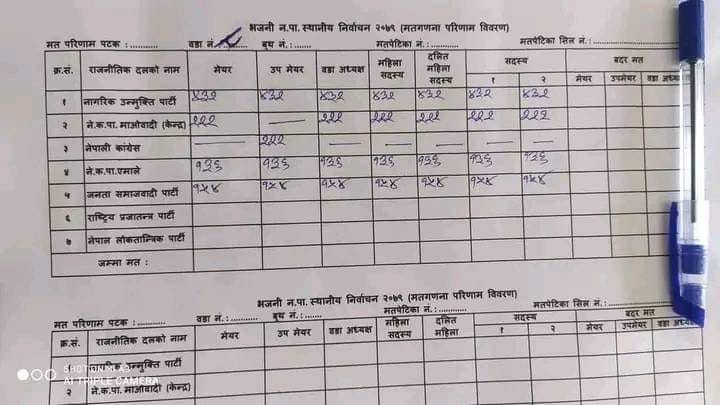 भजनी न.पा. स्थानीय निर्वाचन २०७९ (मतगणना परिणाम विवरण)
मत परिणाम पटक : ........... वडा नं. बुथ नं. : ...... मतपेटिका नं. : ............ मतपेटिका सिल नं. : ............
क्र.सं. राजनीतिक दलको नाम मेयर उप मेयर वडा अध्यक्ष महिला सदस्य दलित महिला सदस्य सदस्य १ २ बदर मत मेयर उपमेयर वडा अध्यक्ष
१ नागरिक उन्मुक्ति पार्टी ४३२ ४३२ ४३२ ४३२ ४३२ ४३२ ४३२
२ ने.क.पा.माओवादी (केन्द्र) २२२ — २२२ २२२ २२२ २२२ २२२
३ नेपाली कांग्रेस — २२२ — — — — —
४ ने.क.पा.एमाले १३६ १३६ १३६ १३६ १३६ १३६ १३६
५ जनता समाजवादी पार्टी १५४ १५४ १५४ १५४ १५४ १५४ १५४
६ राष्ट्रिय प्रजातन्त्र पार्टी
७ नेपाल लोकतान्त्रिक पार्टी
जम्मा मत :
भजनी न.पा. स्थानीय निर्वाचन २०७९ (मतगणना परिणाम विवरण)
मत परिणाम पटक : ........... वडा नं. : .......... बुथ नं. : ...... मतपेटिका सिल नं. : ............
क्र.सं. राजनीतिक दलको नाम मेयर उप मेयर वडा अध्यक्ष महिला सदस्य दलित महिला सदस्य १ २ बदर मत मेयर उपमेयर वडा अध्यक्ष
उन्मुक्ति पार्टी
२ ने.क.पा.माओवादी (केन्द्र)
SHOT ON
AI TRIPLE CAMERA